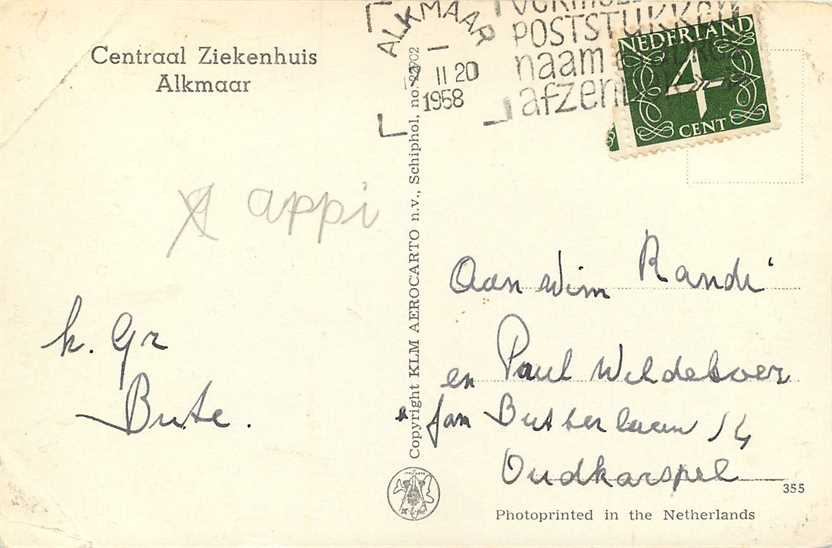 Centraal Ziekenhuis
Alkmaar
ALKMAAR
II 20
1958
POSTSTUKKEN
naam
afzend
NEDERLAND
4
CENT
appi
k. Gr
Bute.
Copyright KLM AEROCARTO n.v., Schiphol, no.
Aan Wim Randi
en Paul Wildeboer
Jan
14
Oudkarspel
355
Photoprinted in the Netherlands